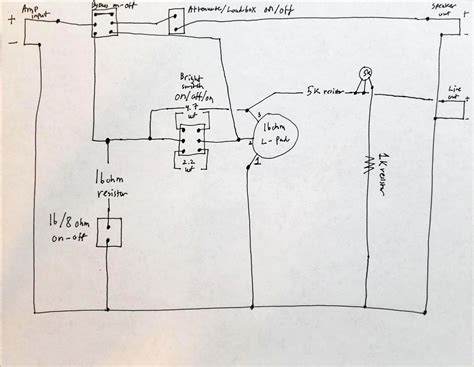 + Amp input
-
on-off
Attenuate/Loadbox on/off
Speaker out
+
-
Bright switch
on/off/on
4.7
uf
2.2
uf
3
2
1
16ohm
L-pad
5K resistor
5k
Line out
+
-
1K resistor
16ohm
resistor
16/8 ohm
on-off